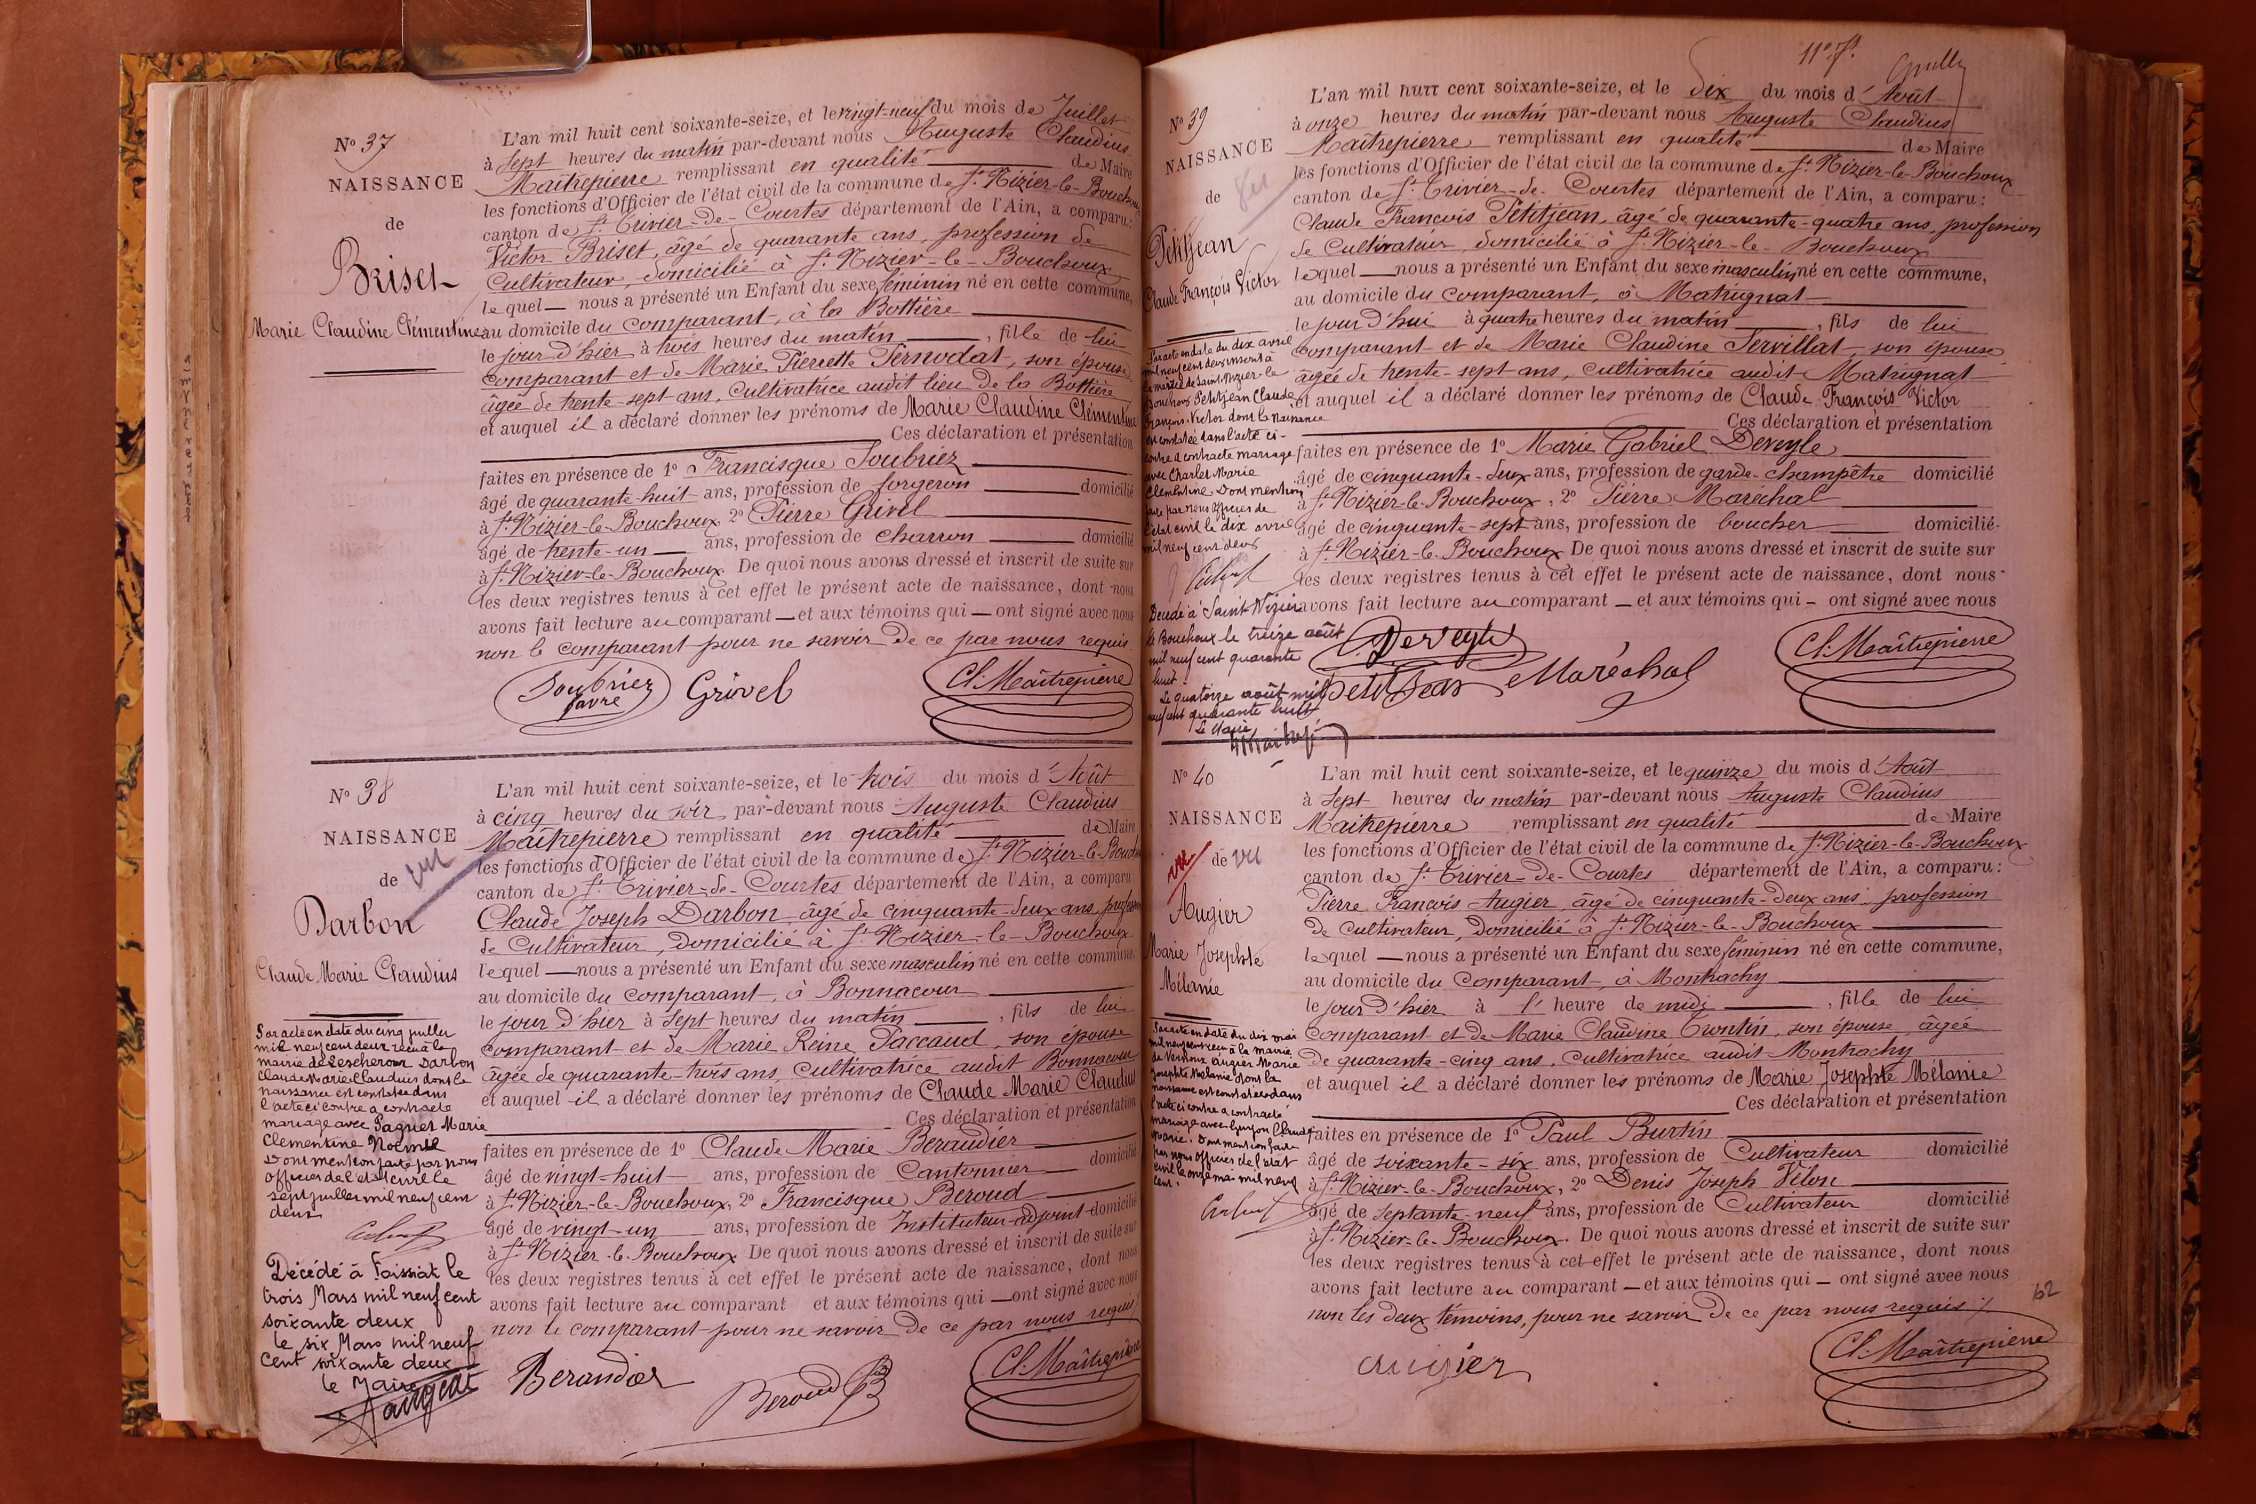 No 37
NAISSANCE
de
Briset
Marie Claudine Clémentine
L'an mil huit cent soixante-seize, et le vingt-neuf du mois de Juillet
à sept heures du matin par-devant nous Auguste Claudius
Maîtrepierre remplissant en qualité de Maire
les fonctions d'Officier de l'état civil de la commune de St Nizier-le-Bouchoux
canton de St Trivier-de-Courtes département de l'Ain, a comparu:
Victor Briset, âgé de quarante ans, profession de
Cultivateur, domicilié à St Nizier-le-Bouchoux
lequel nous a présenté un Enfant du sexe féminin né en cette commune,
au domicile du comparant, à la Bottière
le jour d'hier à trois heures du matin, fille de lui
comparant et de Marie Pierrette Pernodat, son épouse
âgée de trente-sept ans, Cultivatrice audit lieu de la Bottière
et auquel il a déclaré donner les prénoms de Marie Claudine Clémentine
Ces déclaration et présentation
faites en présence de 1º Francisque Soubriez
âgé de quarante-huit ans, profession de forgeron domicilié
à St Nizier-le-Bouchoux 2º Pierre Grivel
âgé de trente-un ans, profession de charron domicilié
à St Nizier-le-Bouchoux. De quoi nous avons dressé et inscrit de suite sur
les deux registres tenus à cet effet le présent acte de naissance, dont nous
avons fait lecture au comparant et aux témoins qui ont signé avec nous
non le comparant pour ne savoir de ce par nous requis
Soubriez
favre
Grivel
Cl. Maîtrepierre
No 38
NAISSANCE
vu
de
Darbon
Claude Marie Claudius
Par acte en date du cinq juillet
mil neuf cent deux reçu à la
mairie de Lescheroux Darbon
Claude Marie Claudius dont la
naissance est constatée dans
l'acte ci contre a contracté
mariage avec Paquet Marie
Clementine Noémie
Dont mention faite par nous
officier de l'état civil le
sept juillet mil neuf cent
deux
Décédé à Foissiat le
trois Mars mil neuf cent
soixante deux
le six Mars mil neuf
cent soixante deux
le Maire
L'an mil huit cent soixante-seize, et le trois du mois d'Août
à cinq heures du soir par-devant nous Auguste Claudius
Maîtrepierre remplissant en qualité de Maire
les fonctions d'Officier de l'état civil de la commune de St Nizier-le-Bouchoux
canton de St Trivier-de-Courtes département de l'Ain, a comparu
Claude Joseph Darbon âgé de cinquante-deux ans, profession
de Cultivateur, domicilié à St Nizier-le-Bouchoux
lequel nous a présenté un Enfant du sexe masculin né en cette commune,
au domicile du comparant, à Bonnacour
le jour d'hier à sept heures du matin, fils de lui
comparant et de Marie Reine Paccaud, son épouse
âgée de quarante-trois ans, Cultivatrice audit Bonnacour
et auquel il a déclaré donner les prénoms de Claude Marie Claudius
Ces déclaration et présentation
faites en présence de 1º Claude Marie Beraudier
âgé de vingt-huit ans, profession de Cantonnier domicilié
à St Nizier-le-Bouchoux, 2º Francisque Beroud
âgé de vingt-un ans, profession de Instituteur-adjoint domicilié
à St Nizier-le-Bouchoux De quoi nous avons dressé et inscrit de suite sur
les deux registres tenus à cet effet le présent acte de naissance, dont nous
avons fait lecture au comparant et aux témoins qui ont signé avec nous
non le comparant pour ne savoir de ce par nous requis
Beraudier
Beroud
Cl. Maîtrepierre
11e ft.
No 39
NAISSANCE
de
vu
Petitjean
Claude François Victor
Par acte en date du dix avril
mil neuf cent deux inscrit à
la mairie de Saint Nizier le
Bouchoux Petitjean Claude
François Victor dont la naissance
est constatée dans l'acte ci-
contre a contracté mariage
avec Charlet Marie
Clémentine Dont mention
faite par nous officier de
l'état civil le dix avril
mil neuf cent deux
Décédé à Saint Nizier
le Bouchoux le treize août
mil neuf cent quarante
huit
Le quatorze août mil
neuf cent quarante huit
Le Maire
L'an mil huit cent soixante-seize, et le dix du mois d'Août
à onze heures du matin par-devant nous Auguste Claudius
Maîtrepierre remplissant en qualité de Maire
les fonctions d'Officier de l'état civil de la commune de St Nizier-le-Bouchoux
canton de St Trivier-de-Courtes département de l'Ain, a comparu:
Claude François Petitjean, âgé de quarante-quatre ans, profession
de Cultivateur domicilié à St Nizier-le-Bouchoux
lequel nous a présenté un Enfant du sexe masculin né en cette commune,
au domicile du comparant, à Matrignat
le jour d'hui à quatre heures du matin, fils de lui
comparant et de Marie Claudine Servillat, son épouse
âgée de trente-sept ans, cultivatrice audit Matrignat
et auquel il a déclaré donner les prénoms de Claude François Victor
Ces déclaration et présentation
faites en présence de 1º Marie Gabriel Deveyle
âgé de cinquante-deux ans, profession de garde-champêtre domicilié
à St Nizier-le-Bouchoux, 2º Pierre Maréchal
âgé de cinquante-sept ans, profession de boucher domicilié
à St Nizier-le-Bouchoux De quoi nous avons dressé et inscrit de suite sur
les deux registres tenus à cet effet le présent acte de naissance, dont nous
avons fait lecture au comparant et aux témoins qui ont signé avec nous
Deveyle
Petit Jean
Maréchal
Cl. Maîtrepierre
No 40
NAISSANCE
vu de vu
Augier
Marie Josephte
Mélanie
Par acte en date du dix mai
mil neuf cent reçu à la mairie
de Vernoux Augier Marie
Josephte Mélanie dont la
naissance est constatée dans
l'acte ci contre a contracté
mariage avec Guyon Claude
Marie. Dont mention faite
par nous officier de l'état
civil le onze mai mil neuf
cent.
L'an mil huit cent soixante-seize, et le quinze du mois d'Août
à sept heures du matin par-devant nous Auguste Claudius
Maîtrepierre remplissant en qualité de Maire
les fonctions d'Officier de l'état civil de la commune de St Nizier-le-Bouchoux
canton de St Trivier-de-Courtes département de l'Ain, a comparu:
Pierre François Augier âgé de cinquante-deux ans profession
de cultivateur, domicilié à St Nizier-le-Bouchoux
lequel nous a présenté un Enfant du sexe féminin né en cette commune,
au domicile du comparant, à Montrachy
le jour d'hier à l' heure de midi, fille de lui
comparant et de Marie Claudine Trontin, son épouse, âgée
de quarante-cinq ans, Cultivatrice audit Montrachy
et auquel il a déclaré donner les prénoms de Marie Josephte Mélanie
Ces déclaration et présentation
faites en présence de 1º Paul Burtin
âgé de soixante-six ans, profession de Cultivateur domicilié
à St Nizier-le-Bouchoux, 2º Denis Joseph Vélon
âgé de septante-neuf ans, profession de Cultivateur domicilié
à St Nizier-le-Bouchoux. De quoi nous avons dressé et inscrit de suite sur
les deux registres tenus à cet effet le présent acte de naissance, dont nous
avons fait lecture au comparant et aux témoins qui ont signé avec nous
non les deux témoins, pour ne savoir de ce par nous requis
62
augier
Cl. Maîtrepierre